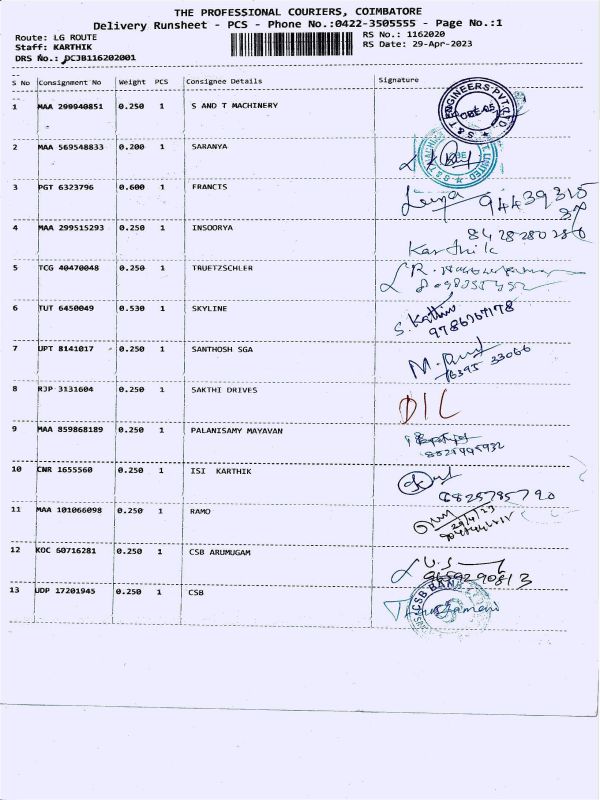 THE PROFESSIONAL COURIERS, COIMBATORE
Delivery Runsheet - PCS - Phone No.:0422-3505555 - Page No.:1
Route: LG ROUTE RS No.: 1162020
Staff: KARTHIK RS Date: 29-Apr-2023
DRS No.: DCJB116202001
S No Consignment No Weight PCS Consignee Details Signature
1 MAA 299940851 0.250 1 S AND T MACHINERY
2 MAA 569548833 0.200 1 SARANYA
3 PGT 6323796 0.600 1 FRANCIS
94439315
4 MAA 299515293 0.250 1 INSOORYA
Karthik
5 TCG 40470048 0.250 1 TRUETZSCHLER
6 TUT 6450049 0.530 1 SKYLINE
S. Kathir
9786767178
7 UPT 8141017 0.250 1 SANTHOSH SGA
33066
8 RJP 3131604 0.250 1 SAKTHI DRIVES
DIL
9 MAA 859868189 0.250 1 PALANISAMY MAYAVAN
10 CNR 1655560 0.250 1 ISI KARTHIK
6825785790
11 MAA 101066098 0.250 1 RAMO
29/4/23
12 KOC 60716281 0.250 1 CSB ARUMUGAM
9659290813
13 UDP 17201945 0.250 1 CSB
CSB BANK